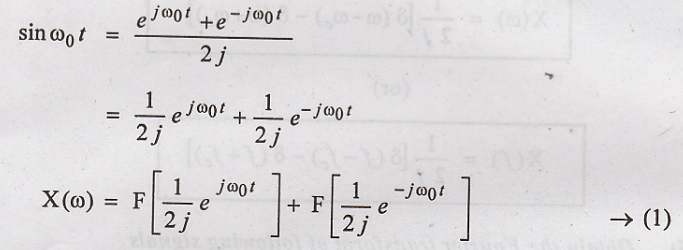 sin ω₀ t = (e^{jω₀t} + e^{-jω₀t}) / 2j
= 1/2j e^{jω₀t} + 1/2j e^{-jω₀t}
X(ω) = F[1/2j e^{jω₀t}] + F[1/2j e^{-jω₀t}] → (1)